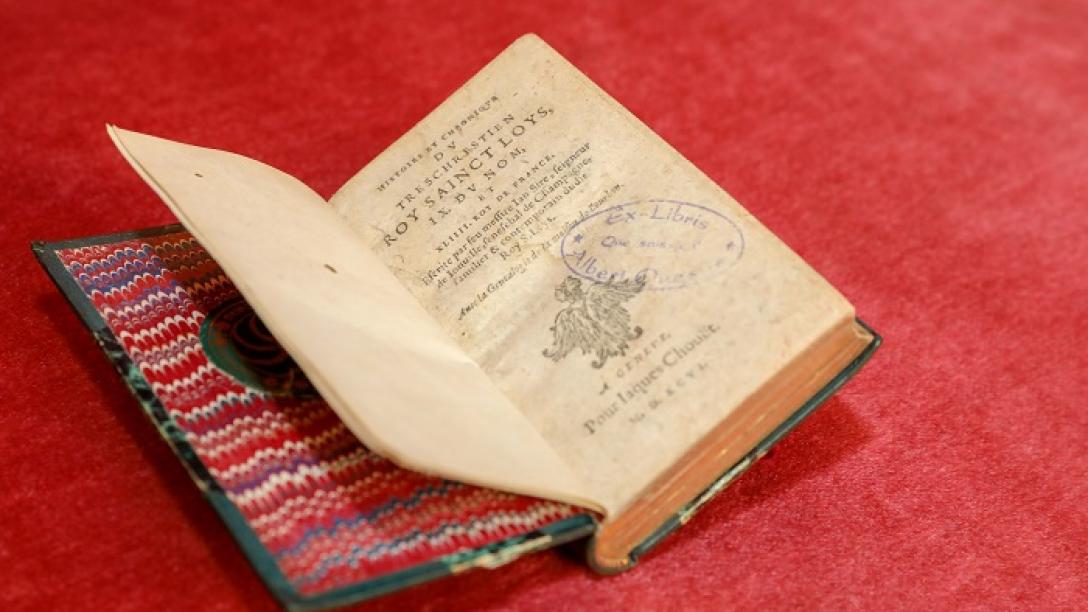 HISTOIRE ET CHRONIQVE
DV
TRESCHRESTIEN
ROY SAINCT LOYS,
IX. DV NOM,
ET
XLIIII. ROY DE FRANCE.
Escrite par feu messire Ian sire, seigneur
de Ionuille, seneschal de Champagne,
familier & contemporain dudit
Roy S. Loys.
Auec la Genealogie de la maison de Bourbon.
Ex-Libris
Que sais-je?
Albert
A GENEVE,
Pour Iaques Chouët.
M. D. XCVI.